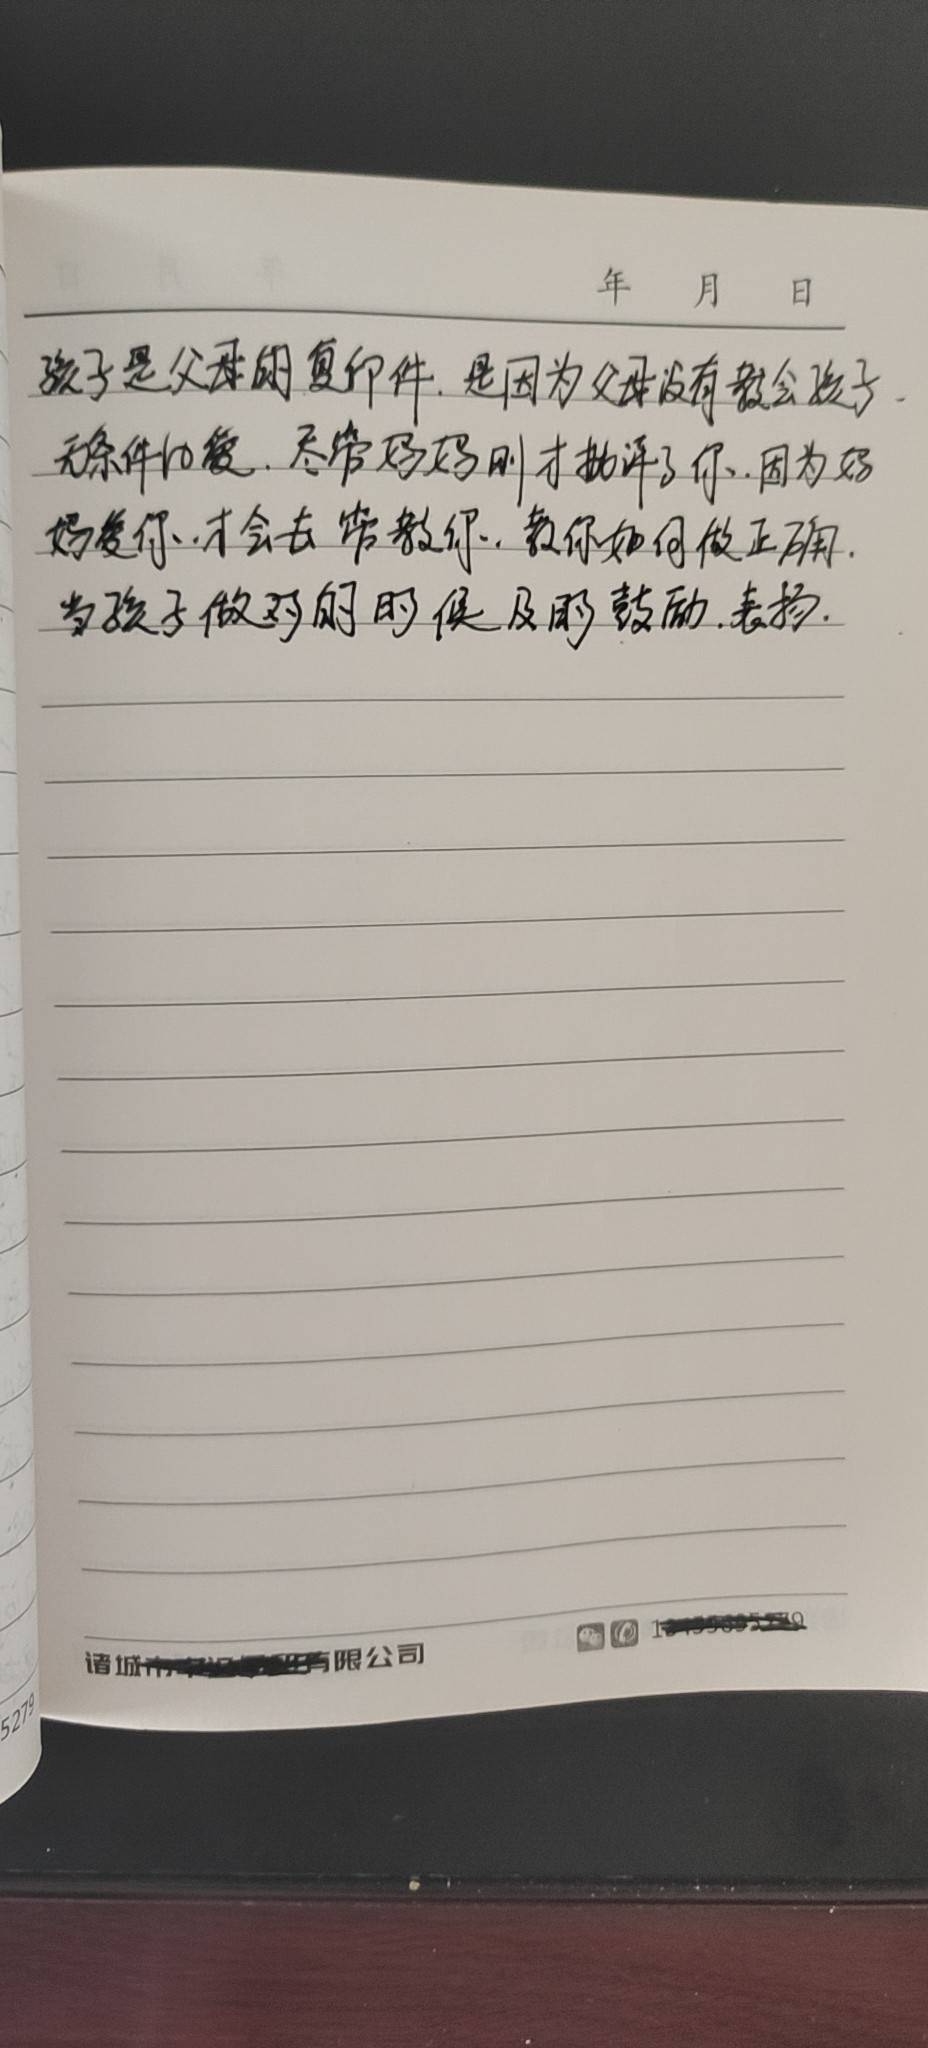 年 月 日
孩子是父母的复印件.是因为父母没有教会孩子.
无条件的爱.尽管妈妈刚才批评了你..因为妈
妈爱你..才会去管教你..教你如何做正确.
当孩子做对的时候及时鼓励.表扬.
诸城 有限公司
5279